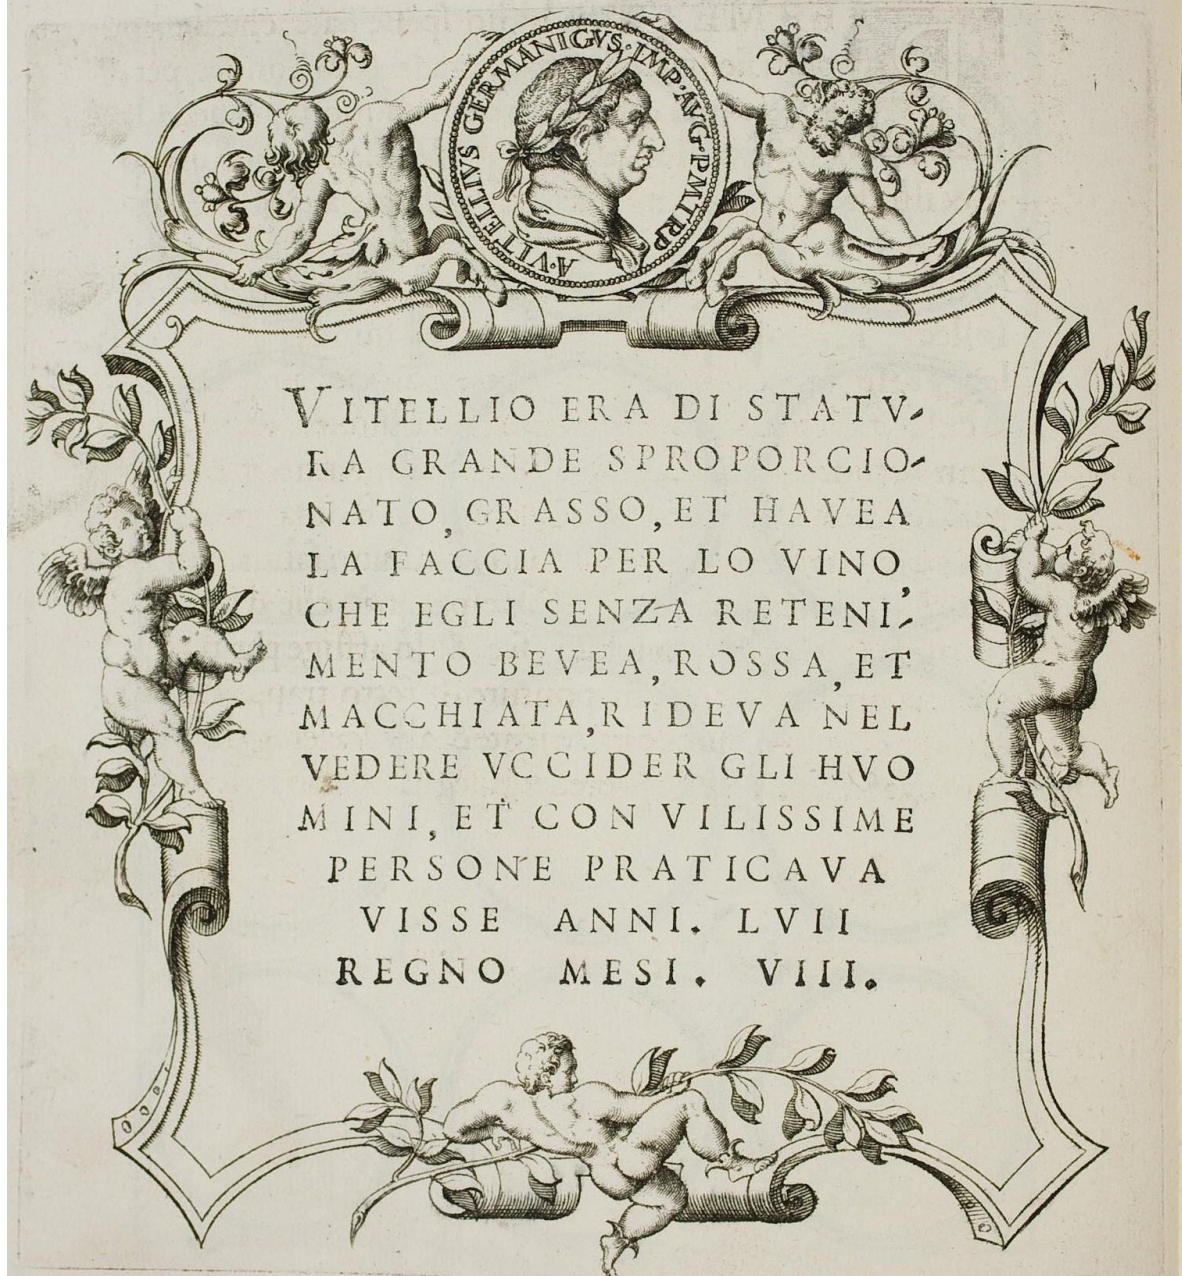 A·VITELLIVS GERMANICVS·IMP·AVG·P·M·TR·P
VITELLIO ERA DI STATV-
RA GRANDE SPROPORCIO-
NATO, GRASSO, ET HAVEA
LA FACCIA PER LO VINO,
CHE EGLI SENZA RETENI-
MENTO BEVEA, ROSSA, ET
MACCHIATA, RIDEVA NEL
VEDERE VCCIDER GLI HVO
MINI, ET CON VILISSIME
PERSONE PRATICAVA
VISSE ANNI. LVII
REGNO MESI. VIII.